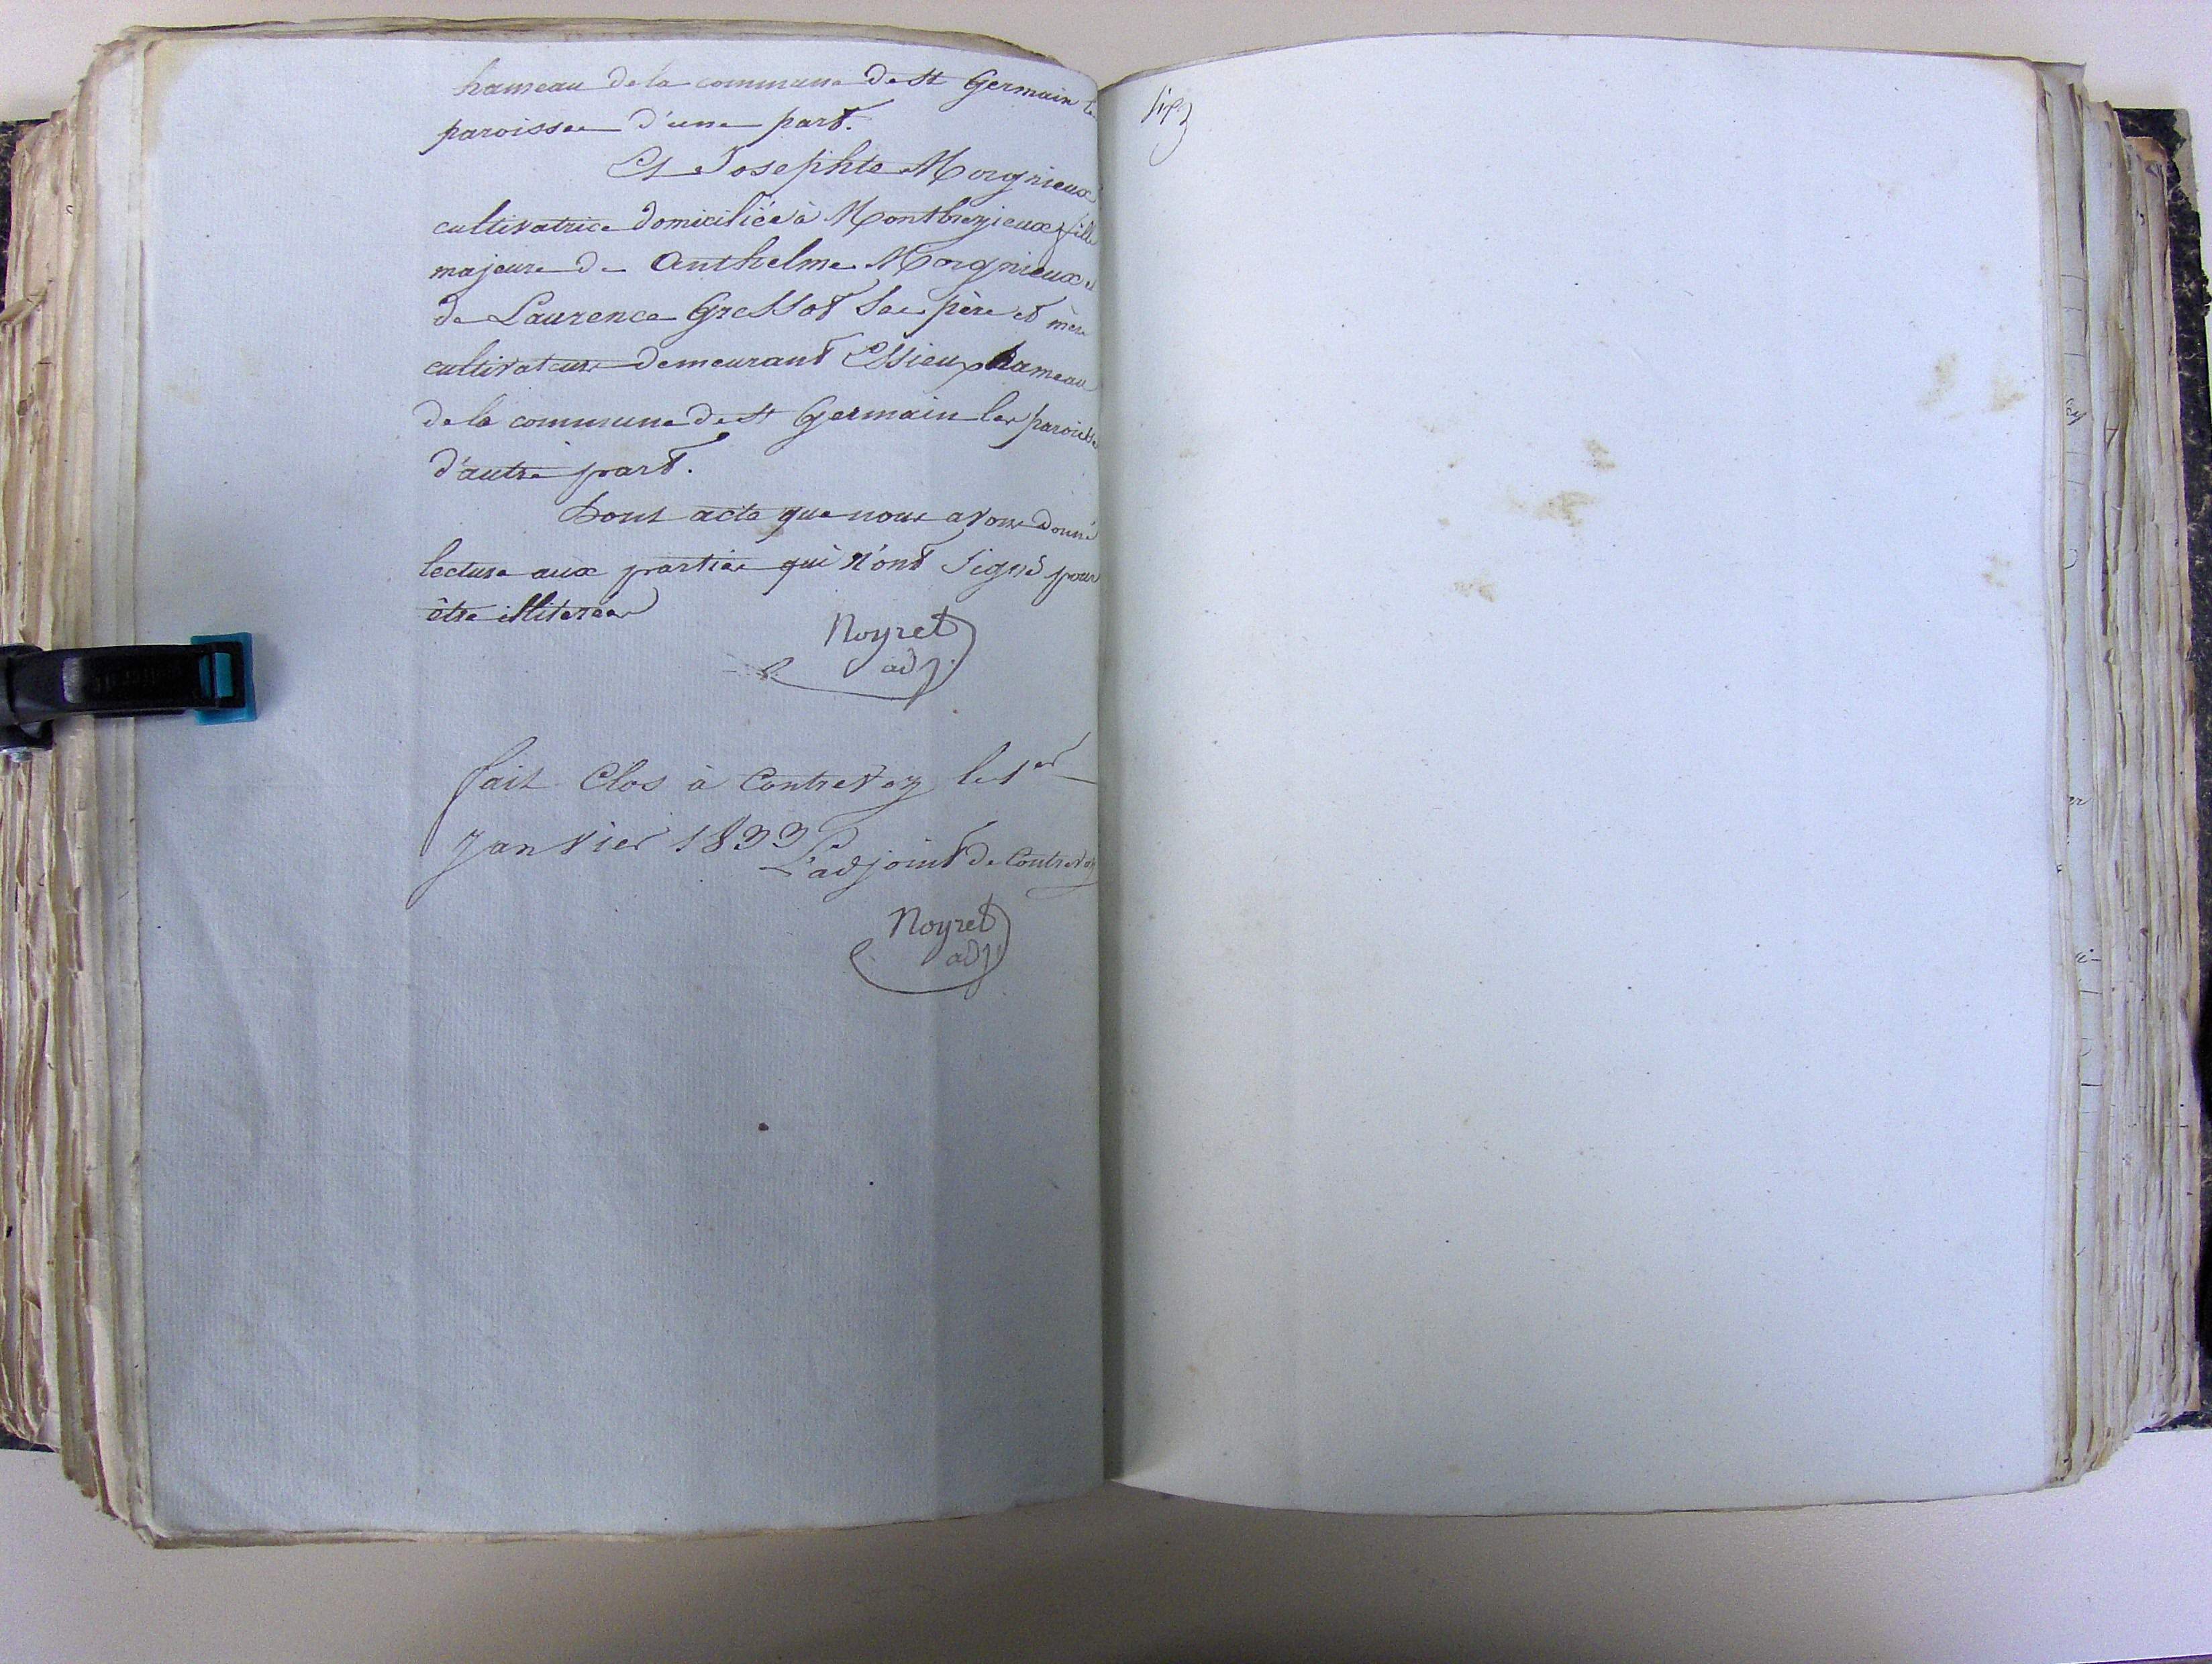 hameau de la commune de St Germain les
paroisses d'une part.
Et Josephte Morgnieux
cultivatrice domiciliée à Montbreyzieux fille
majeure de Anthelme Morgnieux et
de Laurence Gressot ses père et mère
cultivateurs demeurant Essieux hameau
de la commune de St Germain les paroisses
d'autre part.
Dont acte que nous avons donné
lecture aux parties qui n'ont signé pour
être illiterées
Noyret
adj.
fait Clos à Contrevoz le 1er
Janvier 1833
L'adjoint de Contrevoz
Noyret
adj.